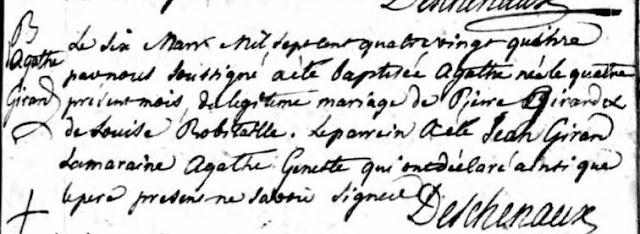 Deschenaux
B
Agathe
Girard
Le six Mars Mil sept cent quatre vingt quatre
par nous soussigné a été baptisée Agathe née le quatre
présent mois, de légitime mariage de Pierre Girard et
de Louise Robitaille. Le parrein a été Jean Giran
La maraine Agathe Genette qui ont déclaré ainsi que
le pere present ne savoir signer
Deschenaux